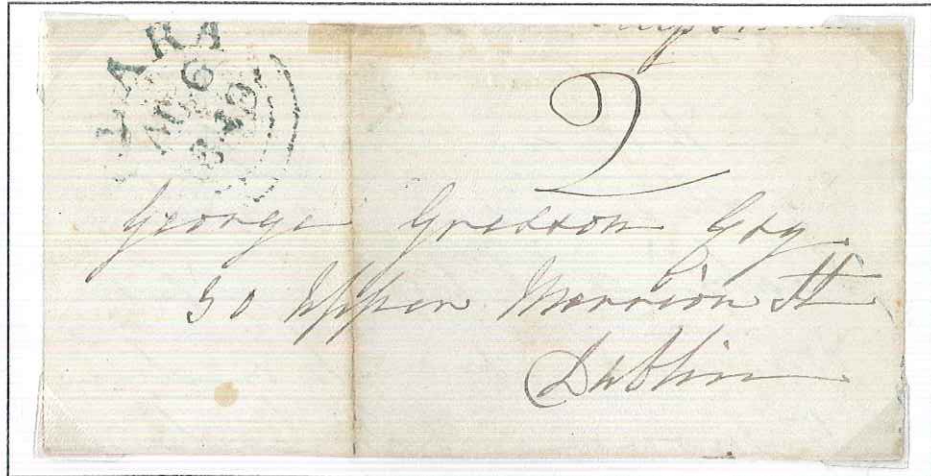 LARA
AU 6
2
George Gresson Esq.
30 Upper Merrion St
Dublin